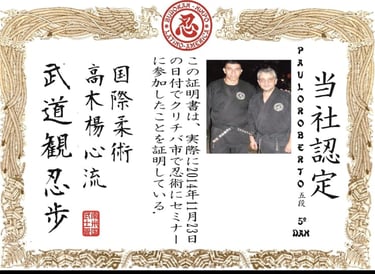 当社認定
PAULOROBERTO 五段
5º
DAN
この証明書は、実際に2014年11月23日
の日付でクリチバ市で忍術にセミナー
に参加したことを証明している
国際柔術
高木楊心流
武道観忍歩
忍